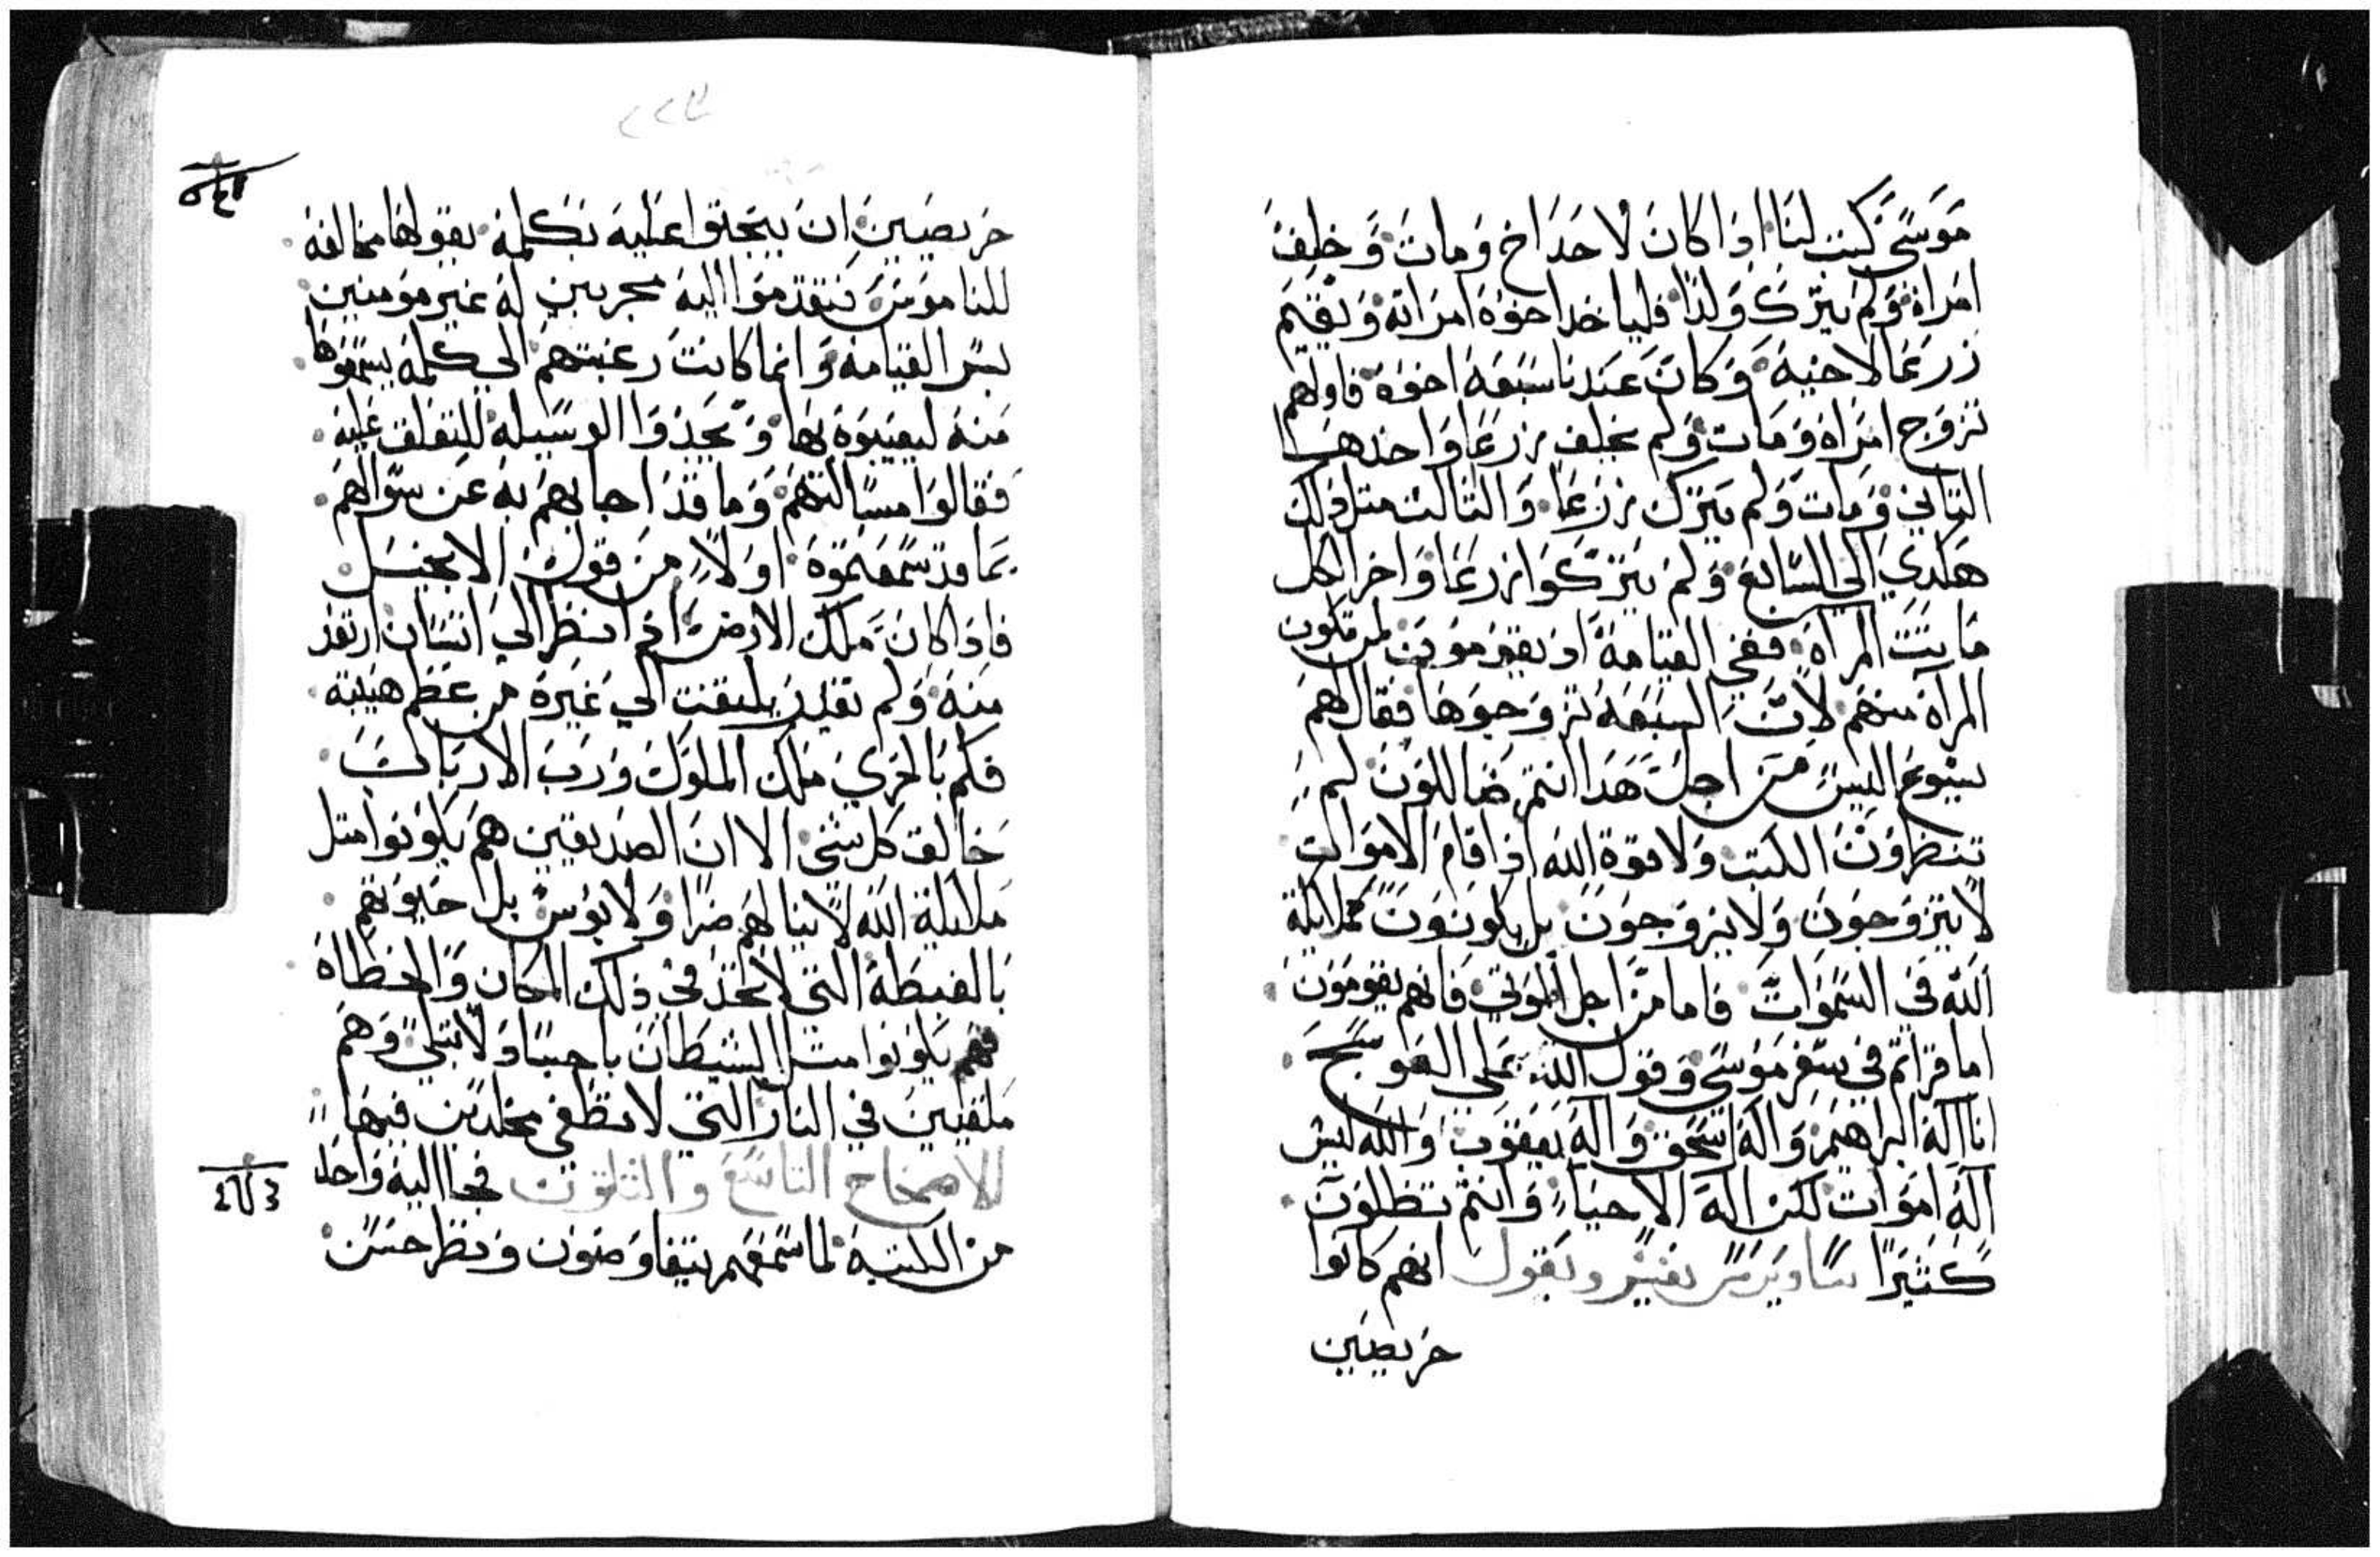 موسى كتب لنا اذا كان لاحد اخ ومات وخلف
امراة ولم يترك ولدًا فلياخد اخوه امراته ويقيم
زرعا لاخيه وكان عندنا سبعة اخوة فاولهم
تزوج امراة ومات ولم يخلف زرعا واخدها
التاني ومات ولم يترك زرعا والتالت متل ذلك
هكدي الي السابع ولم يتركوا زرعا واخر الكل
ماتت المراة ففي القيامة اذ يقومون لمن تكون
المراة منهم لان السبعة تزوجوها فقال لهم
يسوع اليس من اجل هدا انتم ضاللون لم
تنظرون الكتب ولا قوة الله اذا قام الاموات
لا يتزوجون ولا يزوجون بل يكونون كملايكة
الله في السموات فاما من اجل الموتي فانهم يقومون
اما قراتم في سفر موسى وقول الله على العوسج
انا اله ابراهيم واله اسحق واله يعقوب والله ليس
اله اموات لكن اله الاحياء وانتم تظلون
كتيرًا ساويرس يفسر ويقول انهم كانوا
حريصين
٢٢٧
حريصين ان يتجنوا عليه بكلمة يقولها مخالفة
للناموس فتقدموا اليه مجربين له غير مومنين
بسر القيامة وانما كانت رغبتهم الي كلمة يسمعوها
منه ليعيبوه بها ويجدوا الوسيلة للتعلق عليه
فقالوا مسالتهم وما قد اجابهم به عن سوالهم
بما قد سمعتموه اولاً من قول الانجيل
فاذا كان ملك الارض اذا نظر الي انسان ارتعد
منه ولم يقدر يلتفت الي غيره من عظم هيبته
فكم بالحري ملك الملوك ورب الارباب
خالق كل شي الا ان الصديقين هم يكونوا متل
ملايكة الله لا ينالهم ضرا ولا بوس بل حيوتهم
بالغبطة التي لا تحد في ذلك المكان والخطاة
فهم يكونوا متل الشيطان باجسادٍ لا تبلي وهم
ملقيين في النار التي لا تطفي مخلدين فيها
الاصحاح التاسع والتلتون فجا اليه واحد
من الكتبة لما سمعهم يتفاوضون ونظر حسن